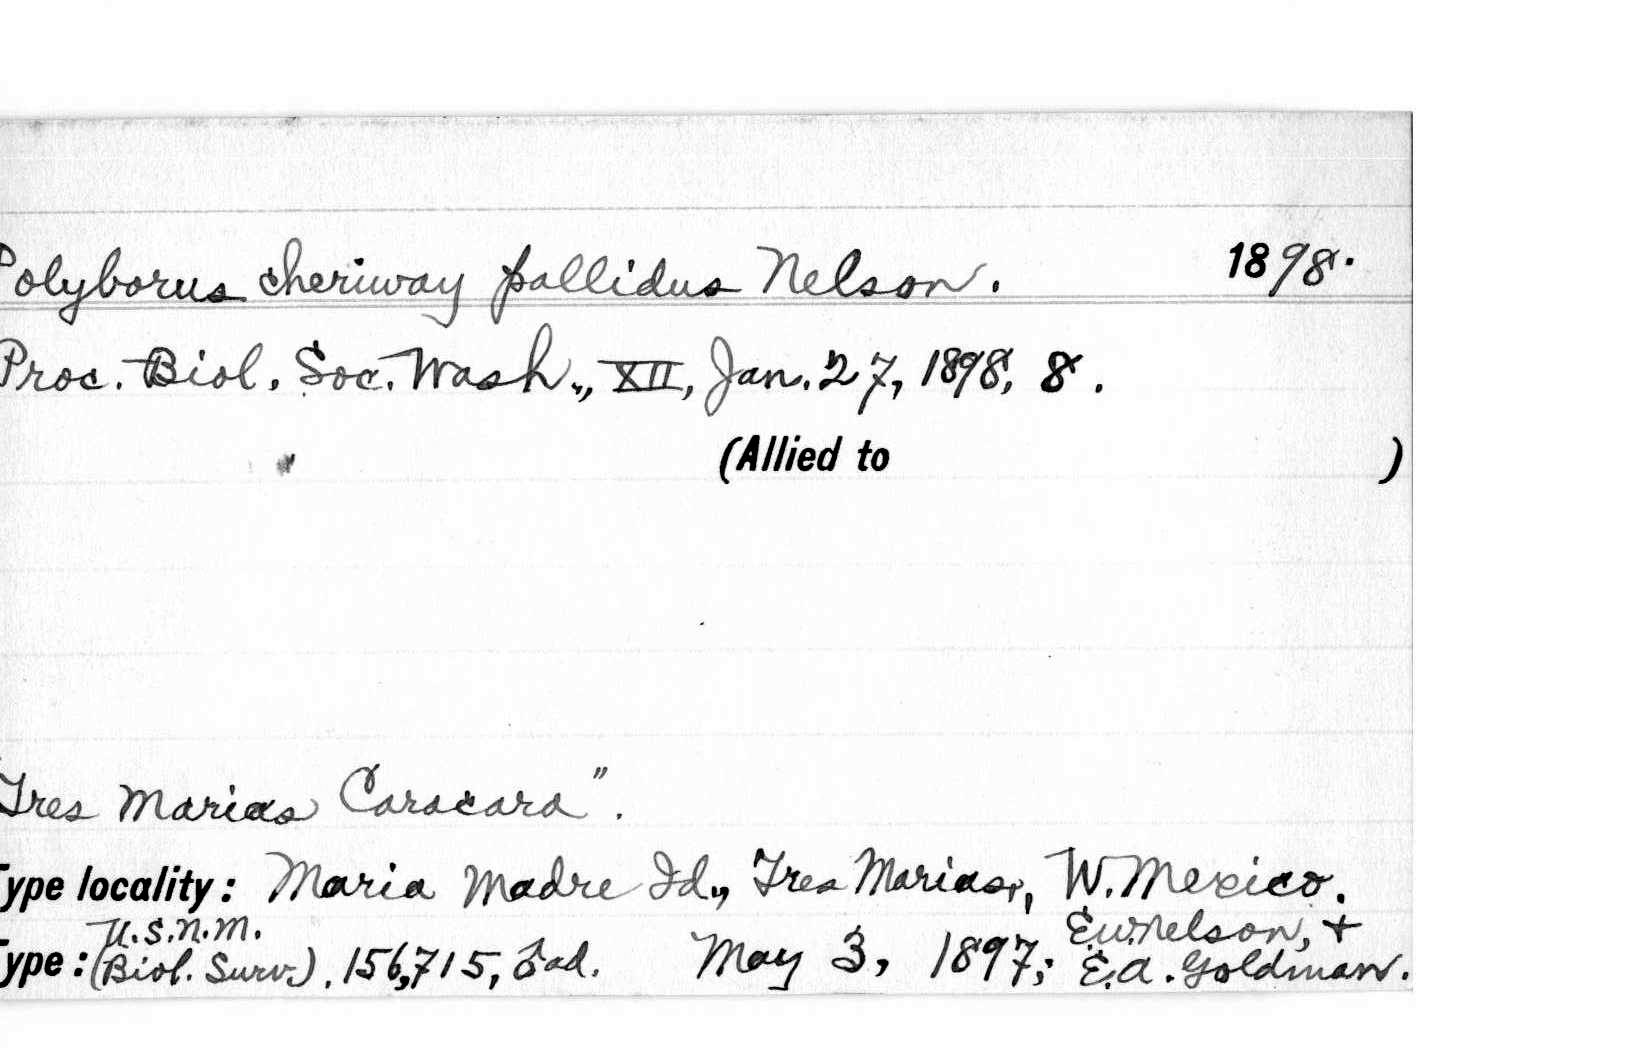 Polyborus cheriway pallidus Nelson. 1898.
Proc. Biol. Soc. Wash., XII, Jan. 27, 1898, 8.
(Allied to )
Tres Marias Caracara".
Type locality: Maria Madre Id., Tres Marias, W. Mexico.
U.S.N.M. E.W. Nelson, +
Type: (Biol. Surv.). 156,715, ♂ ad. May 3, 1897; E.A. Goldman.